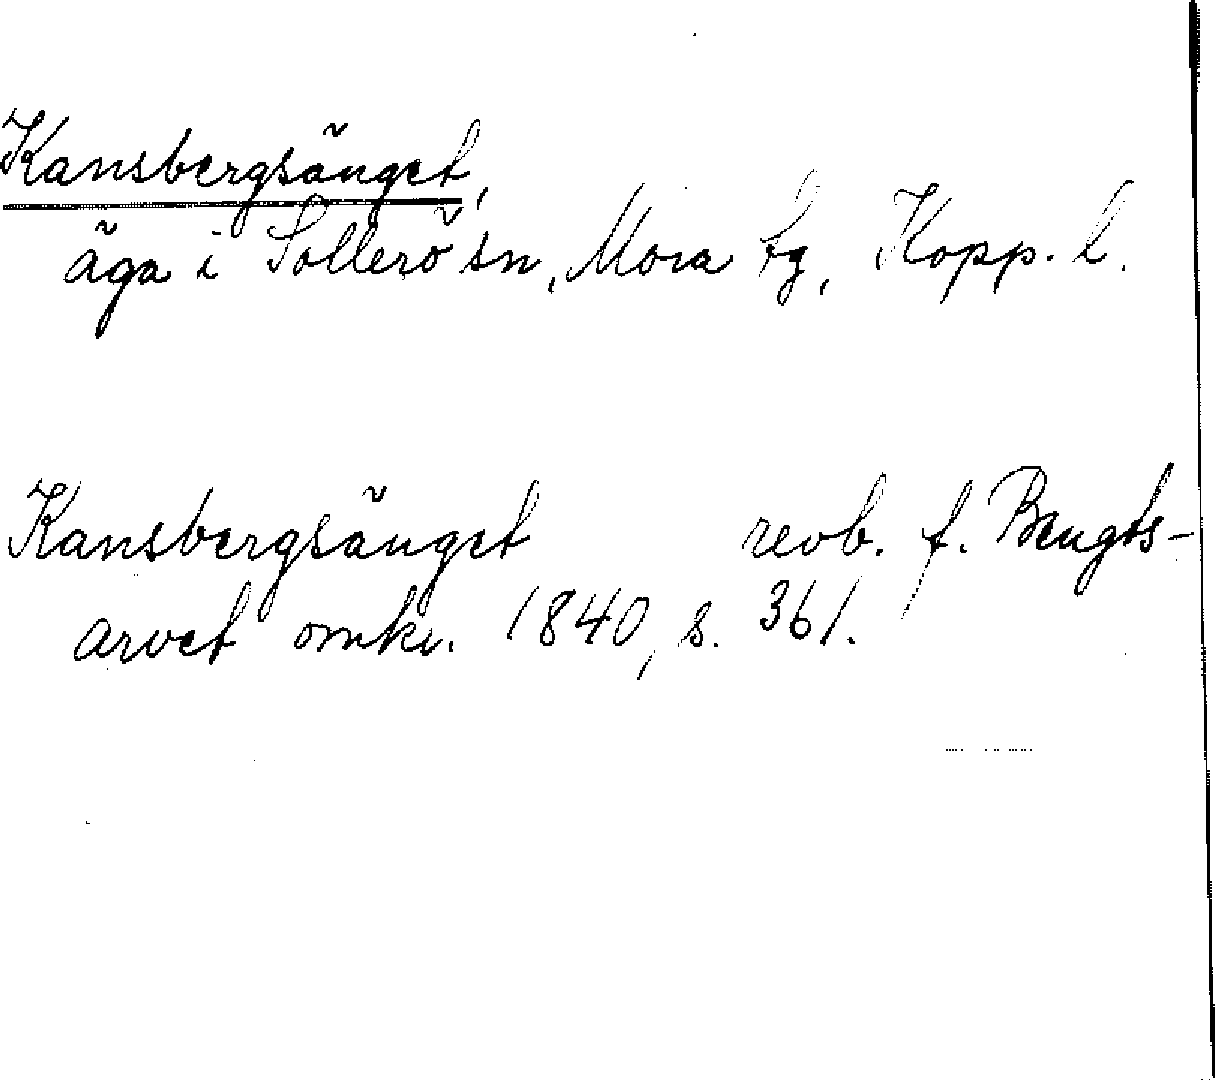 Kansbergsänget,
äga i Sollerö sn, Mora tg, Kopp. l.
Kansbergsänget revb. f. Bengts-
arvet omkr. 1840, s. 361.